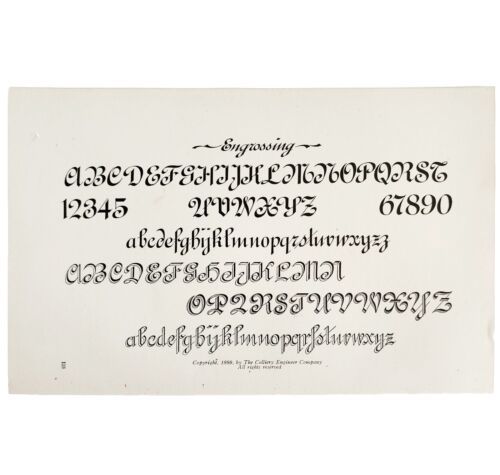 Engrossing
ABCDEFGHIJKLMNOPQRST
12345 UVWXYZ 67890
abcdefghijklmnopqrsturwxyzz
ABCDEFGHIJKLMN
OPQRSTUVWXYZ
abcdefghijklmnopqrsturwxyz
Copyright, 1899, by The Colliery Engineer Company
All rights reserved